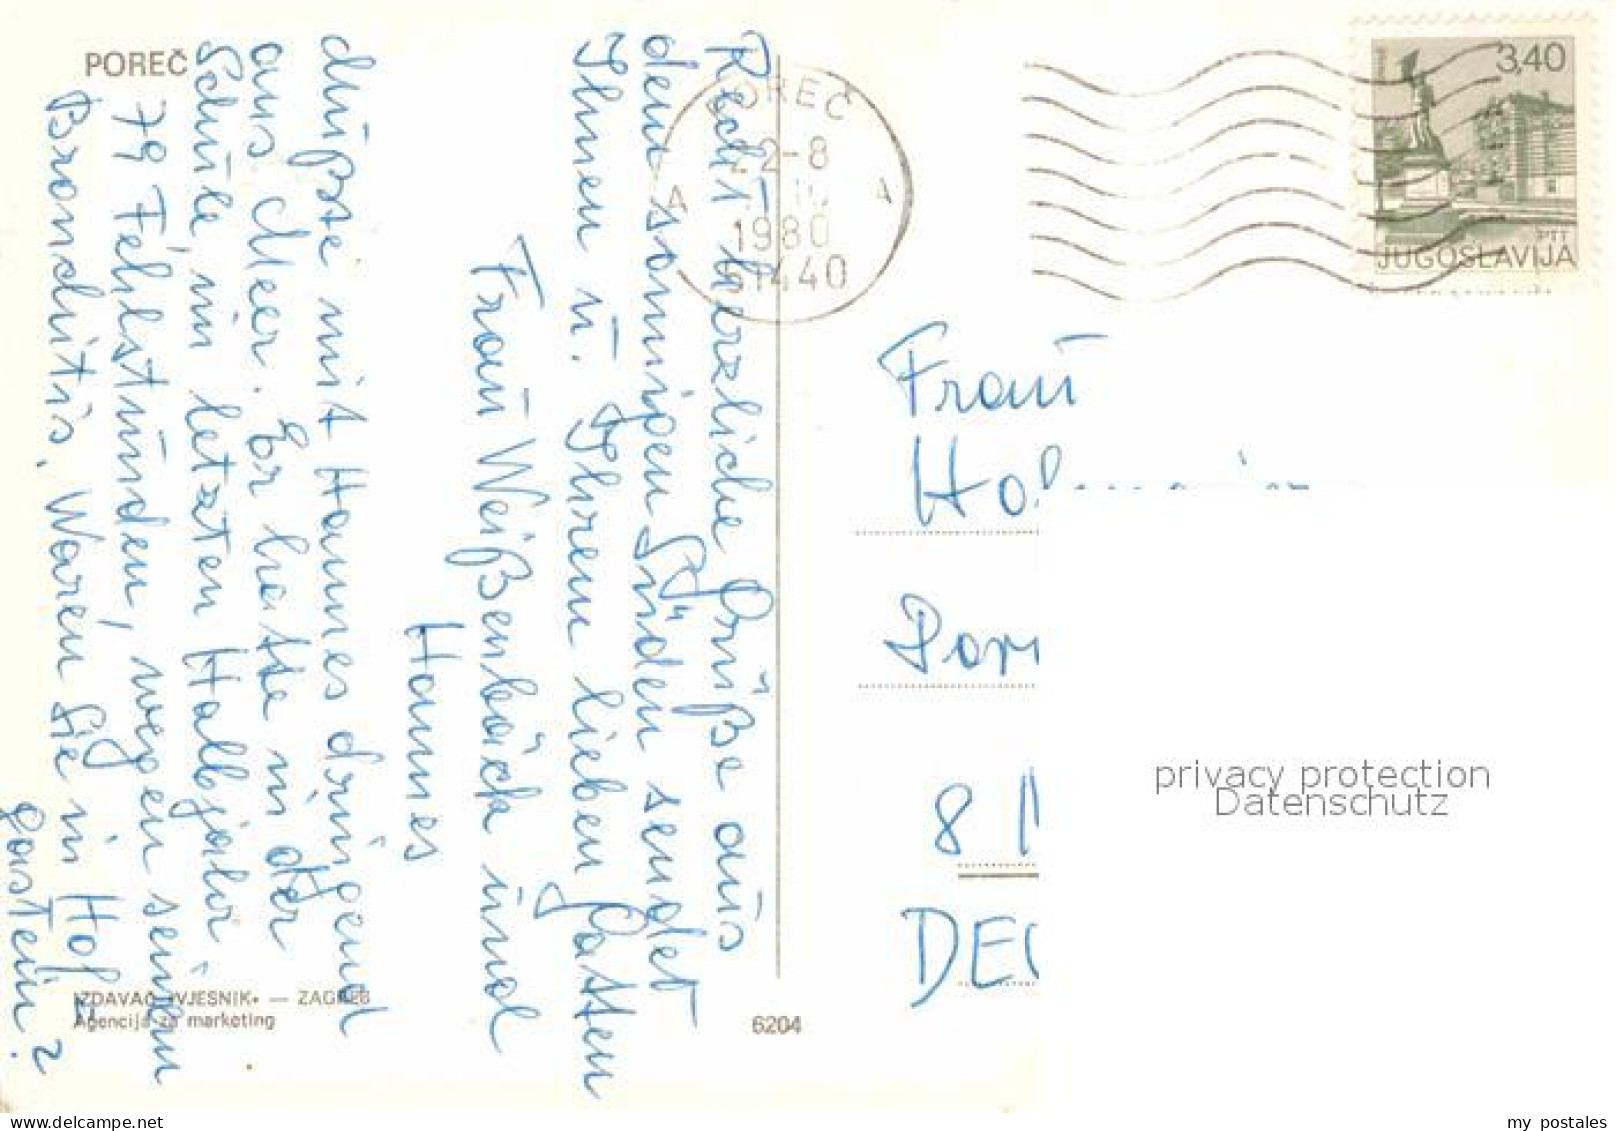 POREČ
Recht herzliche Grüße aus
dem sonnigen Süden sendet
Ihnen u. Ihrem lieben Gatten
Frau Weißenbäck und
Hannes
dürfte mit Hannes dringend
ans Meer. Er hatte in der
Schule, im letzten Halbjahr
79 Fehlstunden, wegen seinen
Bronchitis. Waren Sie in Hof
gastein?
IZDAVAČ »VJESNIK« — ZAGREB
Agencija za marketing
6204
POREČ
2-8
1980
51440
A A
3,40
PTT
JUGOSLAVIJA
Frau
8
privacy protection
Datenschutz
my postales